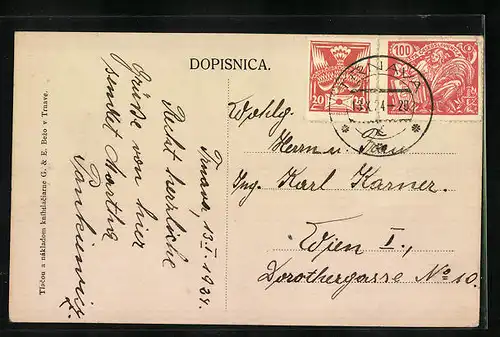 DOPISNICA.
20
100
TRNAVA
Trnava, 13.I.1924.
Recht herzliche
Grüße von hier
sendet Martha
Wohlg.
Herrn u. Frau
Ing. Karl Karner.
Wien I.,
Dorothergasse No 10.
Tlačou a nákladom kníhtlačiarne G. & E. Bežo v Trnave.